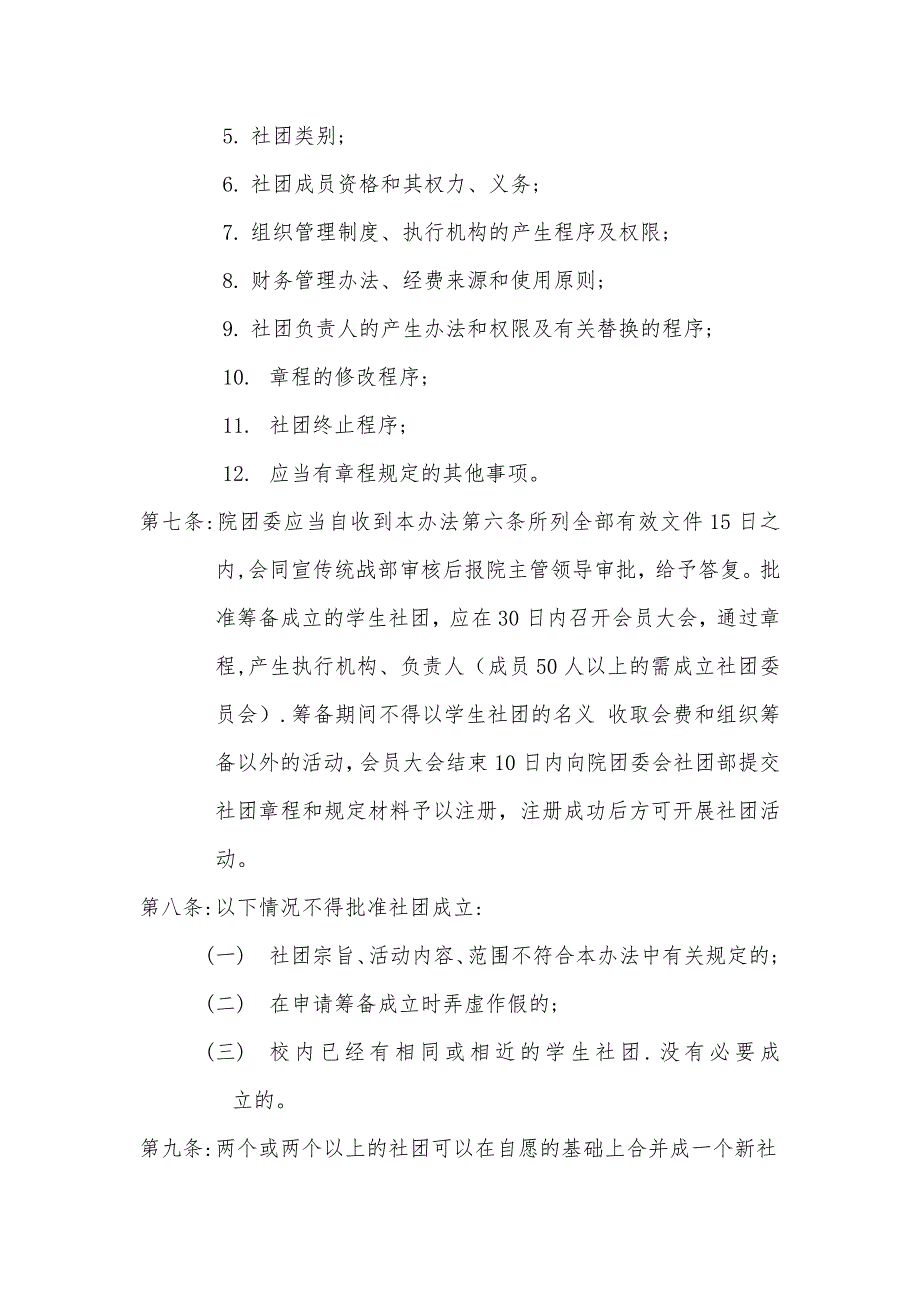 5. 社团类别;
6. 社团成员资格和其权力、义务;
7. 组织管理制度、执行机构的产生程序及权限;
8. 财务管理办法、经费来源和使用原则;
9. 社团负责人的产生办法和权限及有关替换的程序;
10. 章程的修改程序;
11. 社团终止程序;
12. 应当有章程规定的其他事项。
第七条:院团委应当自收到本办法第六条所列全部有效文件15日之
内,会同宣传统战部审核后报院主管领导审批，给予答复。批
准筹备成立的学生社团，应在30日内召开会员大会，通过章
程,产生执行机构、负责人（成员50人以上的需成立社团委
员会）.筹备期间不得以学生社团的名义 收取会费和组织筹
备以外的活动，会员大会结束10日内向院团委会社团部提交
社团章程和规定材料予以注册，注册成功后方可开展社团活
动。
第八条:以下情况不得批准社团成立:
(一) 社团宗旨、活动内容、范围不符合本办法中有关规定的;
(二) 在申请筹备成立时弄虚作假的;
(三) 校内已经有相同或相近的学生社团.没有必要成
立的。
第九条:两个或两个以上的社团可以在自愿的基础上合并成一个新社